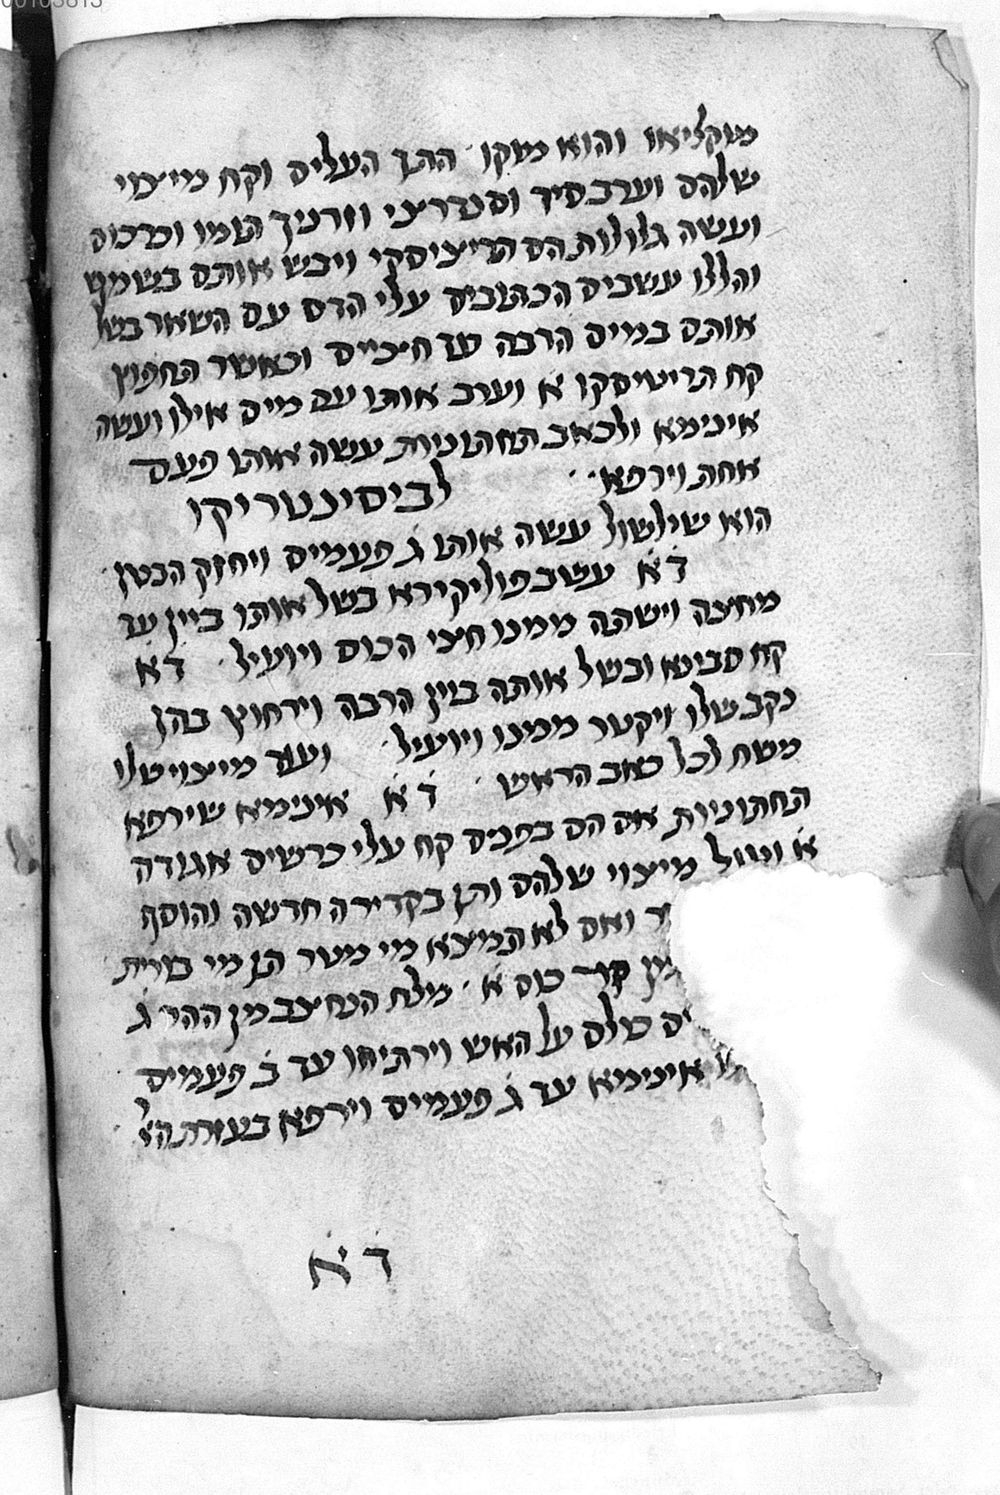 00103813
מוקליאו והוא מוקו · החך העלים וקח מייצוי
שלהם וערב סיד וסנדריצי וזרניך הומו וכרכום
ועשה גלולות הם תריציסקי ויבש אותם בשמש
והללו עשבים הכתובים עלי הדס עם השאר בשל
אותם במיים הרבה עד חציים וכאשר תחפוץ
קח תריטיסקו א וערב אותו עם מים אילו ועשה
אינימא ולכאב תחתוניות עשה אותו פעם
אחת וירפא ·
לביסינטריקו
הוא שילשול עשה אותו ג פעמים ויחזק הבטן
ד̇א̇ עשב פוליקירא בשל אותו ביין עד
מחצה וישתה ממנו חצי הכוס ויועיל · ד̇א̇
קח סבינא ובשל אותה ביין הרבה וירחוץ בהן
נקב שלו ויקטר ממינו ויועיל · ועוד מייצוי שלו
משח לכל כאב הראש · ד̇א̇ אינימא שירפא
תחתוניות אם הם בפנים קח עלי כרשים אגודה
א וטול מיצוי שלהם ותן בקדירה חדשה והוסף
ואם לא תמיצא מי מטר תן מי בורית
כוס א · מלח הנחצב מן ההר ג
כולם על האש וירתיחו עד ב פעמים
אינימא עד ג פעמים וירפא בעזרת הצ'י
ד̇א̇